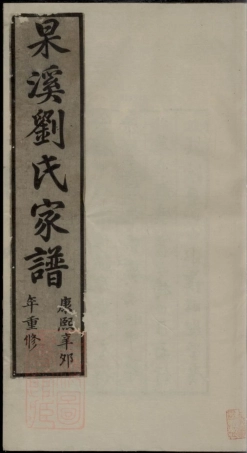 杲溪劉氏家譜
康熙辛卯
年重修